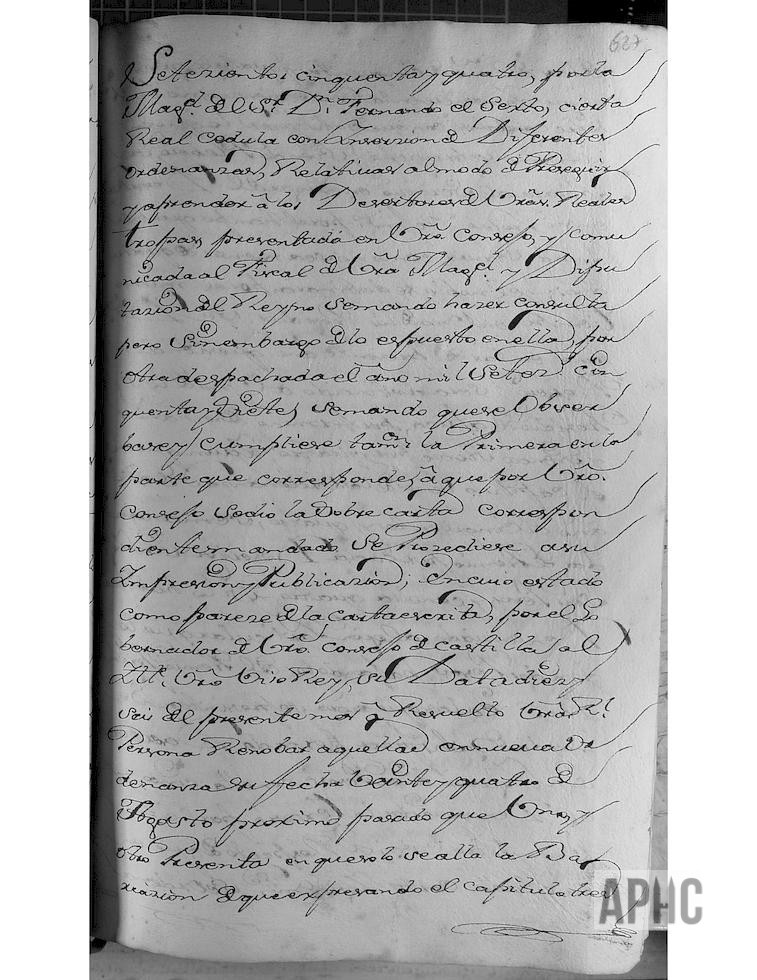 627
Setezientos cinquenta y quatro, por la
Magd. del Sr. Dn. Fernando el Sexto, cierta
Real Cedula con Inserzion de Diferentes
ordenanzas, Relativas al modo de Perseguir
y aprender a los Desertores de Vras. Reales
tropas presentada en Vro. Consejo, y comu
nicada al Fiscal de Vra Magd. y Dipu
tazion del Reyno se mando hazer consulta
pero sinembargo de lo espuesto en ella, por
otra despachada el año mil Setezs. cin
quenta y Siete, se mando que se Obser
base y cumpliese tamn. la Primera en la
parte que corresponde, a que por Vro.
Consejo se dio la Sobre carta correspon
diente mandado se Prozediese a su
Impresion y Publicazion; En cuio estado
como pareze de la carta escrita, por el Go
bernador de Vro. Consejo de Castilla, al
Illte. Vro Viso Rey, su Data diez y
seis del presente mes a Resuelto Vra Rl.
Persona Renobar aquellas en nueva Or
denanza su fecha Veinte y quatro de
Agosto proximo pasado que Una, y
otro Presenta en que solo se alla la Ba
riazion de que expresando el capitulo trez
APHC